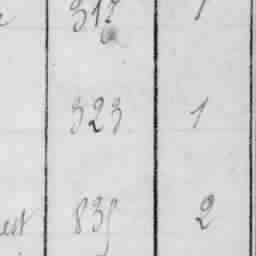 317 1
323 1
est 835 2